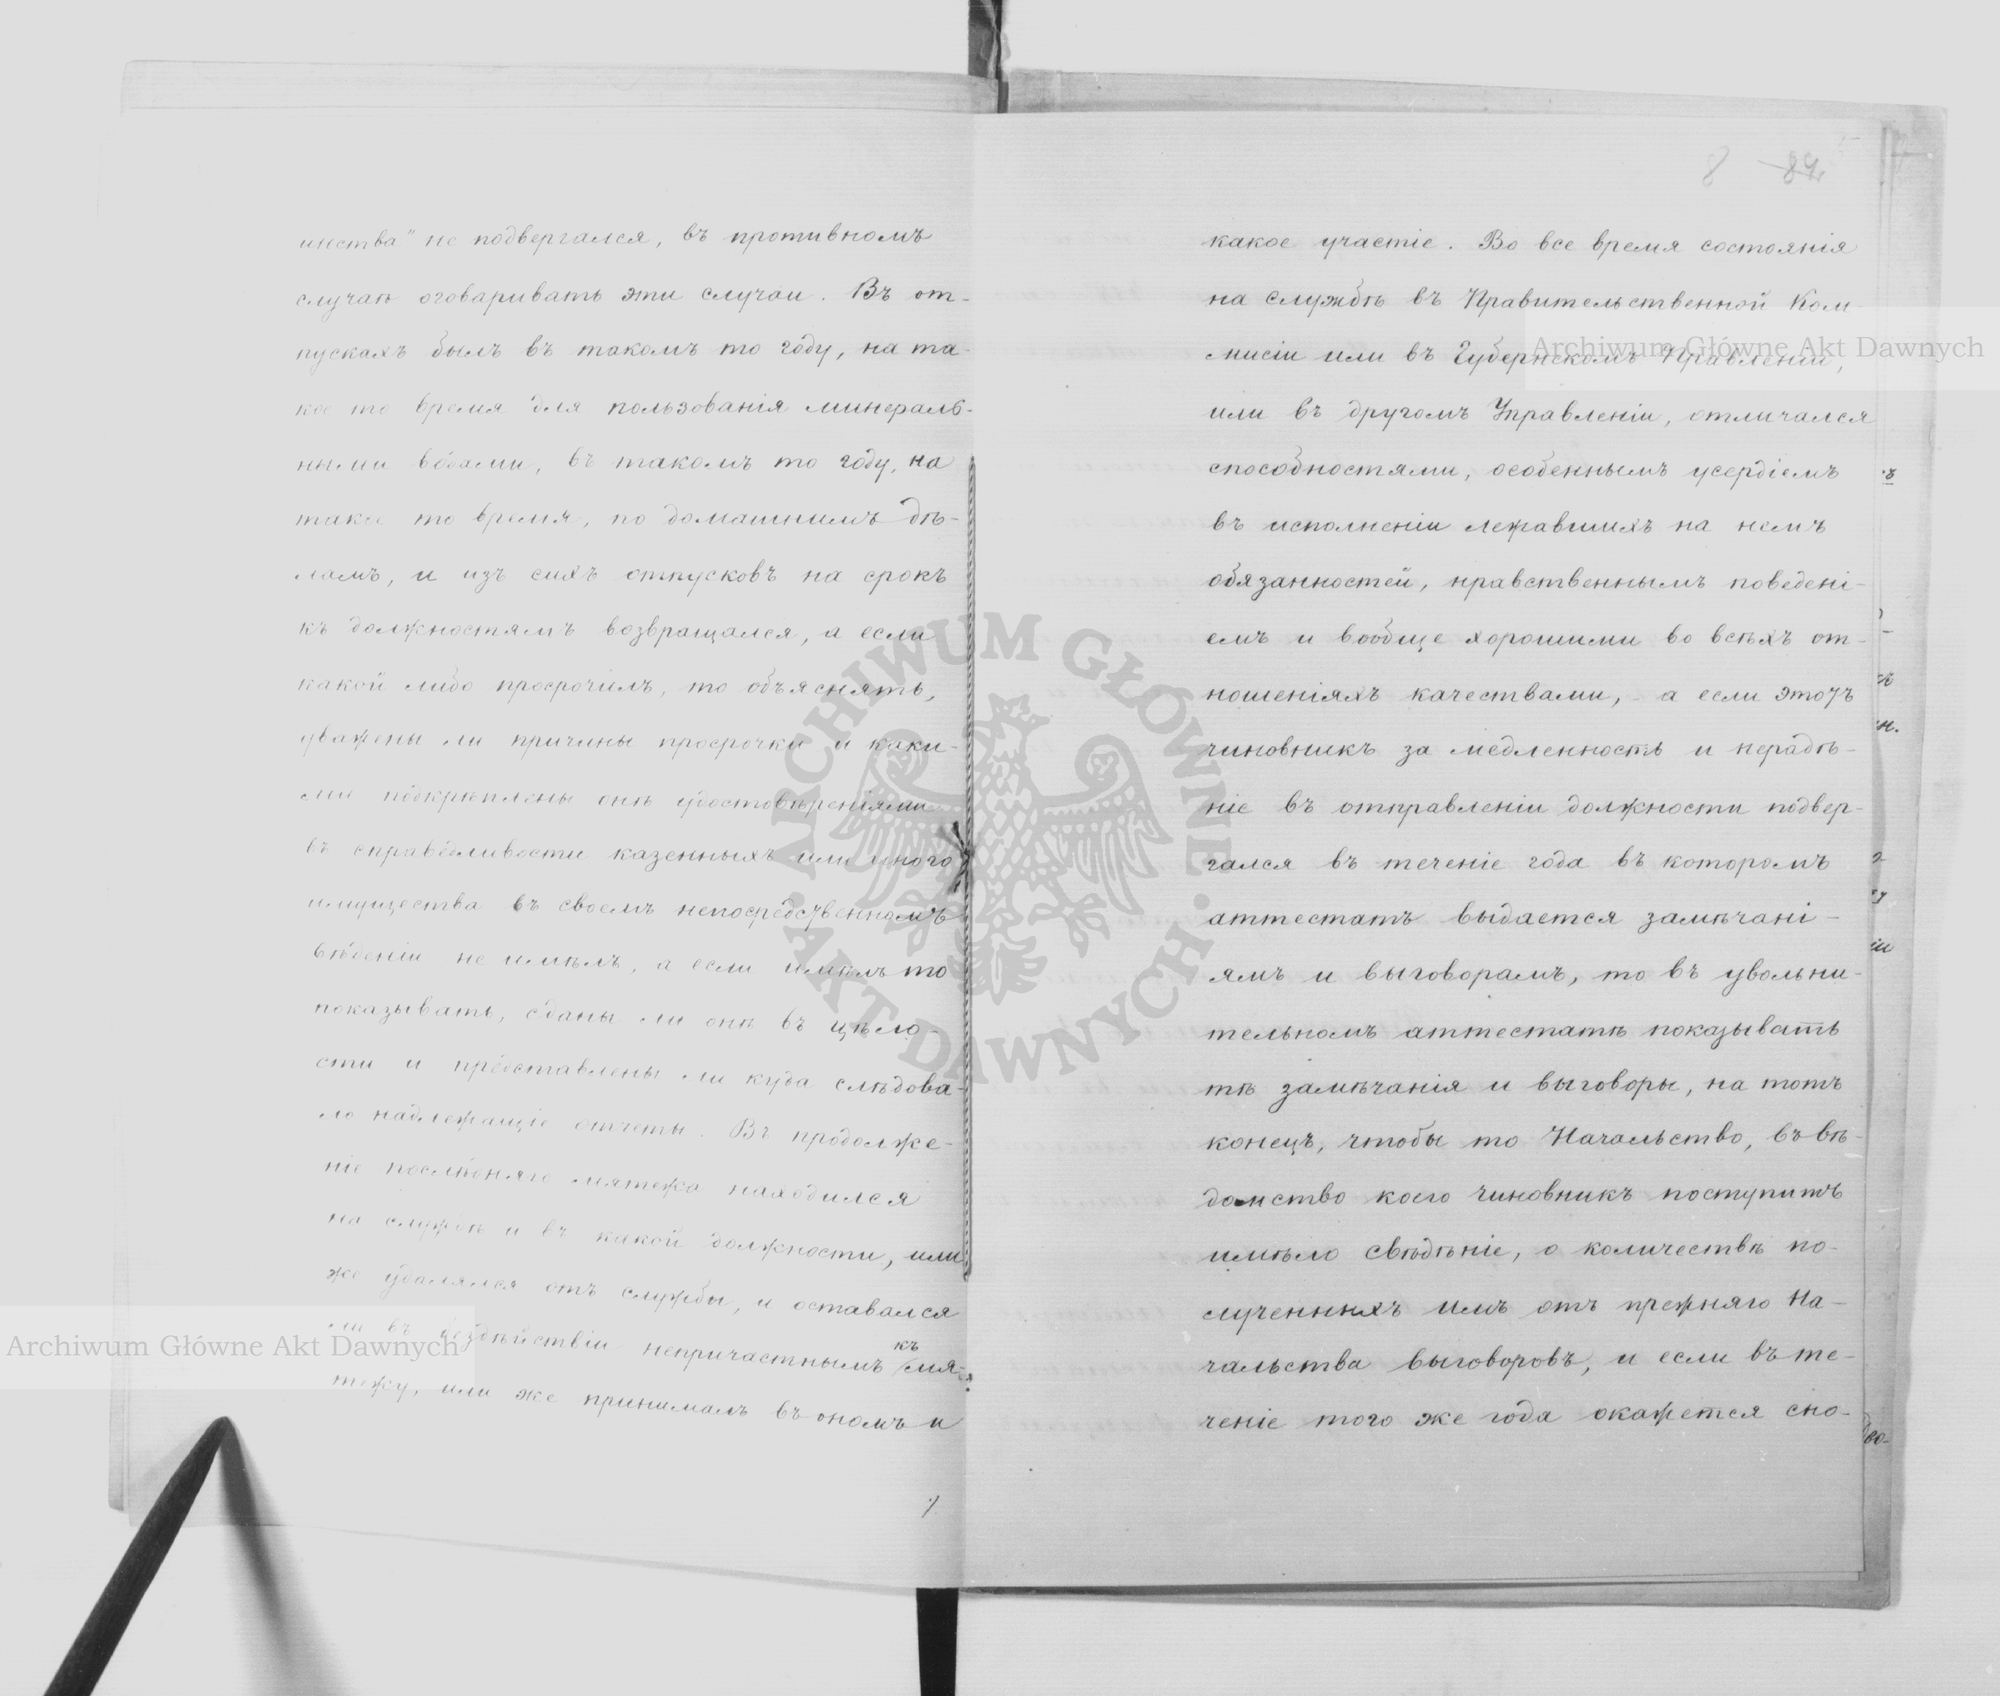 инства" не подвергался, въ противномъ
случаѣ оговаривать эти случаи. Въ от-
пускахъ былъ въ такомъ то году, на та-
кое то время для пользованія минераль-
ными водами, въ такомъ то году, на
такое то время, по домашнимъ дѣ-
ламъ, и изъ сихъ отпусковъ на срокъ
къ должностямъ возвращался, а если
какой либо просрочилъ, то объяснять,
уважены ли причины просрочки и каки-
ми подкрѣплены онѣ удостовѣреніями
въ справедливости казенныхъ или иного
имущества въ своемъ непосредственномъ
вѣденіи не имѣлъ, а если имѣлъ то
показывать, сданы ли онѣ въ цѣло-
сти и представлены ли куда слѣдова-
ло надлежащіе отчеты. Въ продолже-
ніе послѣдняго мятежа находился
на службѣ и въ какой должности, или
же удалялся отъ службы, и оставался
ли въ бездѣйствіи непричастнымъ къ мя-
тежу, или же принималъ въ ономъ и
8 84
какое участіе. Во все время состоянія
на службѣ въ Правительственной Ком-
мисіи или въ Губернскомъ Правленіи,
или въ другомъ Управленіи, отличался
способностями, особеннымъ усердіемъ
въ исполненіи лежавшихъ на немъ
обязанностей, нравственнымъ поведені-
емъ и вообще хорошими во всѣхъ от-
ношеніяхъ качествами, - а если этотъ
чиновникъ за медленность и нерадѣ-
ніе въ отправленіи должности подвер-
гался въ теченіе года въ которомъ
аттестатъ выдается замѣчані-
ямъ и выговорамъ, то въ увольни-
тельномъ аттестатѣ показывать
тѣ замѣчанія и выговоры, на тотъ
конецъ, чтобы то Начальство, въ вѣ-
домство коего чиновникъ поступитъ
имѣло свѣдѣніе, о количествѣ по-
лученныхъ имъ отъ прежняго На-
чальства выговоровъ, и если въ те-
ченіе того же года окажется сно-
Archiwum Główne Akt Dawnych
Archiwum Główne Akt Dawnych
ARCHIWUM GŁÓWNE · AKT DAWNYCH ·